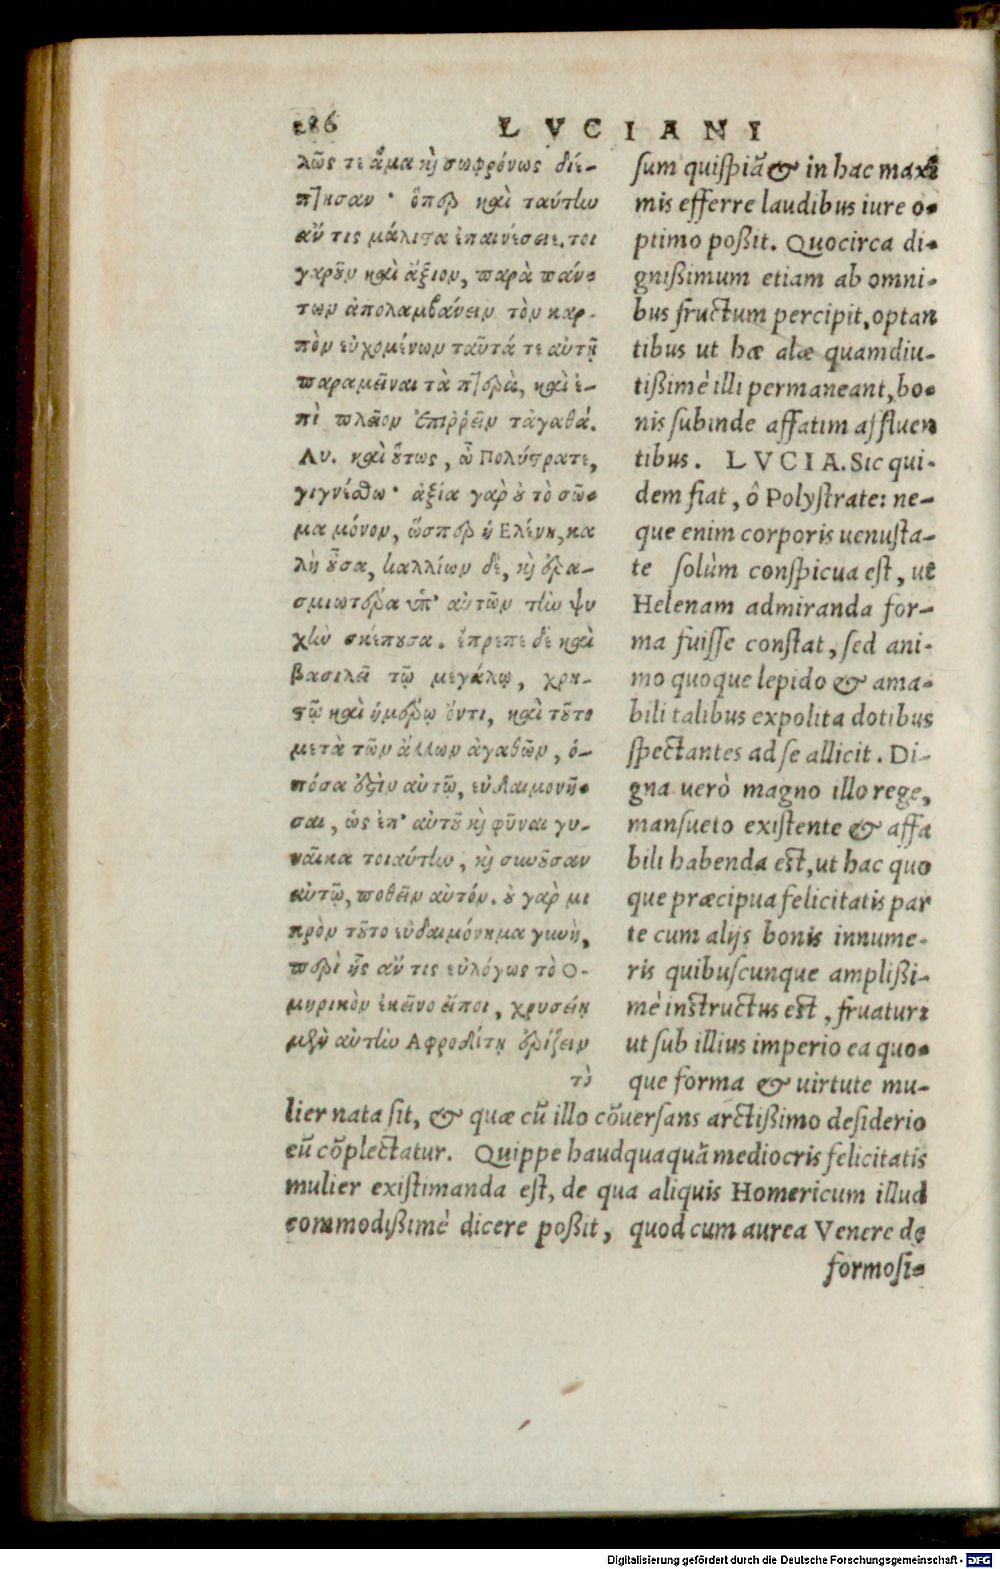 286 LVCIANI
λῶς τε ἅμα καὶ σωφρόνως διέ-
πτησαν· ὅπερ καὶ ταύτην
ἄν τις μάλιστα ἐπαινέσειε. τοι
γαροῦν καὶ ἄξιον, παρὰ πάν-
των ἀπολαμβάνειν τὸν καρ-
πὸν εὐχομένων ταῦτά τε αὐτῇ
παραμεῖναι τὰ πτερὰ, καὶ ἐ-
πὶ πλεῖον ἐπιῤῥεῖν τἀγαθά.
Λυ. καὶ οὕτως, ὦ Πολύστρατε,
γιγνέσθω· ἀξία γὰρ οὐ τὸ σῶ-
μα μόνον, ὥσπερ ἡ Ελένη, κα
λὴ οὖσα, καλλίων δὲ, καὶ ἐρα-
σμιωτέρα ὑπ' αὐτῶν τὴν ψυ
χὴν σκέπουσα. ἔπρεπε δὲ καὶ
βασιλεῖ τῷ μεγάλῳ, χρη-
στῷ καὶ ἡμέρῳ ὄντι, καὶ τοῦτο
μετὰ τῶν ἄλλων ἀγαθῶν, ὁ-
πόσα ἐστὶν αὐτῷ, εὐδαιμονῆ-
σαι, ὡς ἐπ' αὐτοῦ καὶ φῦναι γυ-
ναῖκα τοιαύτην, καὶ συνοῦσαν
αὐτῷ, ποθεῖν αὐτόν. οὐ γὰρ μι
κρὸν τοῦτο εὐδαιμόνημα γυνὴ,
περὶ ἧς ἄν τις εὐλόγως τὸ Ο-
μηρικὸν ἐκεῖνο εἴποι, χρυσείῃ
μὲν αὐτὴν Αφροδίτῃ ἐρίζειν
τὸ
sum quispiã & in hac maxi
mis efferre laudibus iure o-
ptimo poßit. Quocirca di-
gnißimum etiam ab omni-
bus fructum percipit, optan
tibus ut hæ alæ quamdiu-
tißimè illi permaneant, bo-
nis subinde affatim affluen
tibus. LVCIA. Sic qui-
dem fiat, ô Polystrate: ne-
que enim corporis uenusta-
te solùm conspicua est, ut
Helenam admiranda for-
ma fuisse constat, sed ani-
mo quoque lepido & ama-
bili talibus expolita dotibus
spectantes ad se allicit. Di-
gna uerò magno illo rege,
mansueto existente & affa
bili habenda est, ut hac quo
que præcipua felicitatis par
te cum alijs bonis innume-
ris quibuscunque amplißi-
mè instructus est, fruatur:
ut sub illius imperio ea quo-
que forma & uirtute mu-
lier nata sit, & quæ cũ illo cõuersans arctißimo desiderio
eũ cõplectatur. Quippe haudquaquã mediocris felicitatis
mulier existimanda est, de qua aliquis Homericum illud
commodißimè dicere poßit, quod cum aurea Venere de
formosi-
Digitalisierung gefördert durch die Deutsche Forschungsgemeinschaft - DFG